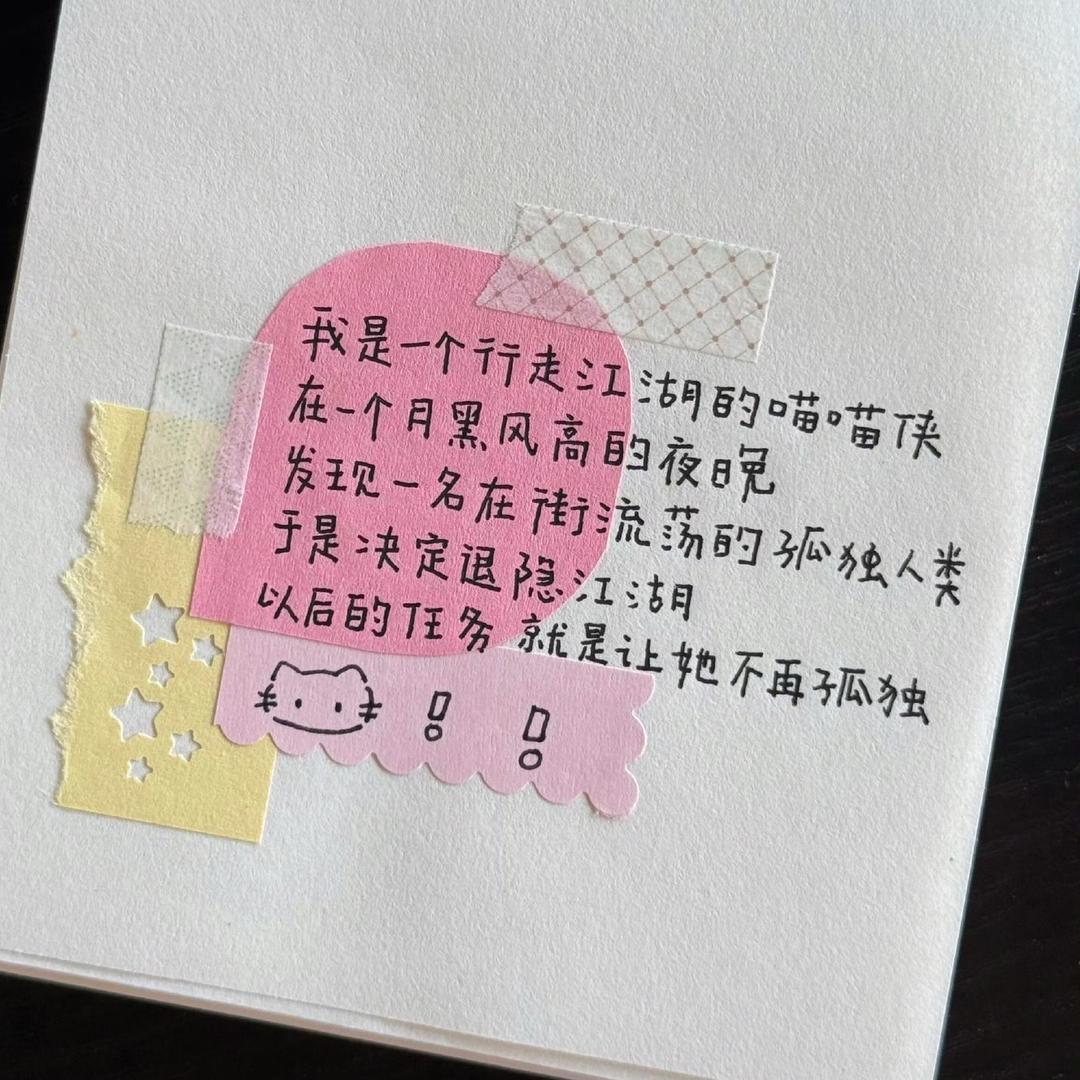 我是一个行走江湖的喵喵侠
在一个月黑风高的夜晚
发现一名在街流荡的孤独人类
于是决定退隐江湖
以后的任务就是让她不再孤独
！！